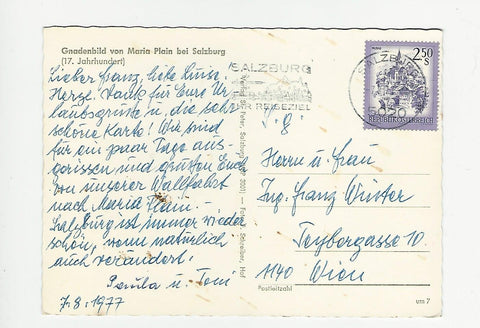 Gnadenbild von Maria Plain bei Salzburg
(17. Jahrhundert)
Lieber Franz, liebe Luise,
Herzl. Dank für Eure Ur-
laubsgrüße u. die sehr
schöne Karte! Wir sind
für ein paar Tage aus-
gerissen und grüßen Euch
von unserer Wallfahrt
nach Maria Plain.
Salzburg ist immer wieder
schön, wenn natürlich
auch verändert!
Paula u. Toni
7.8.1977
Verlag St. Peter, Salzburg
Schreiber, Hof
SALZBURG
IHR REISEZIEL
SALZBURG
5020
2.50
S
REPUBLIK ÖSTERREICH
Herrn u. Frau
Ing. Franz Winter
Teybergasse 10
1140 Wien
Postleitzahl
um 7